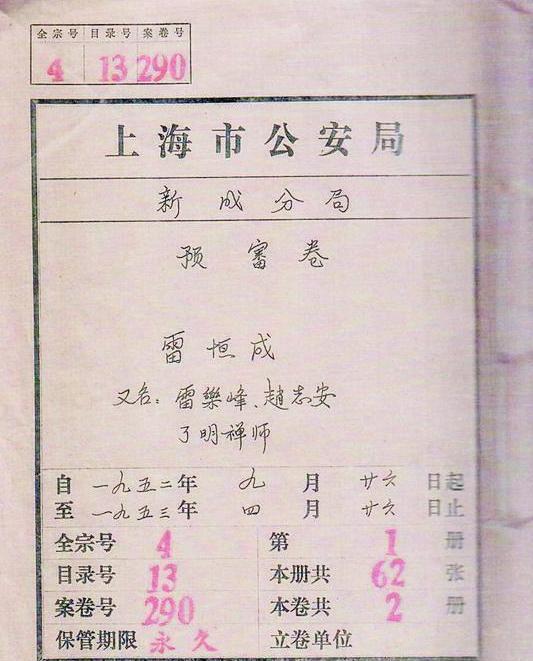 全宗号 目录号 案卷号
4 13 290
上海市公安局
新成分局
预审卷
雷恒成
又名：雷樂峰、趙志安
了明禅师
自 一九五二年 九 月 廿六 日起
至 一九五三年 四 月 廿六 日止
全宗号 4 第 1 册
目录号 13 本册共 62 张
案卷号 290 本卷共 2 册
保管期限 永久 立卷单位